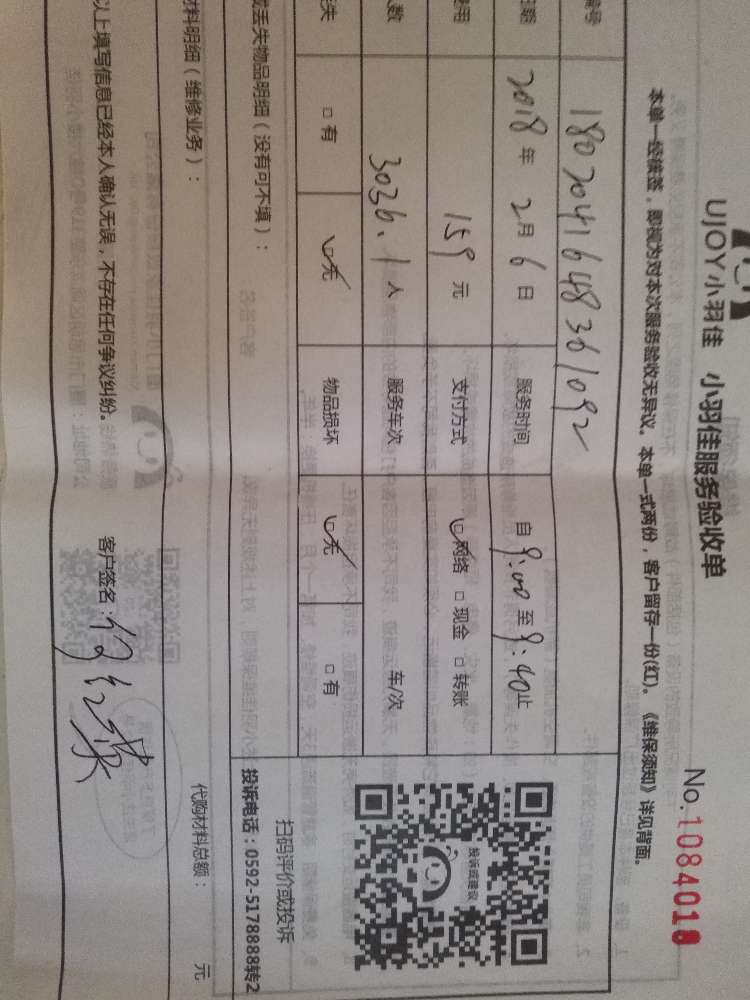 UJOY小羽佳 小羽佳服务验收单
No.1084018
本单一经核签，即视为对本次服务验收无异议。本单一式两份，客户留存一份(红)。《维保须知》详见背面。
编号 180204164836 1092
日期 2018年2月6日 服务时间 自9:00至9:40止
费用 159元 支付方式 网络 □现金 □转账
人数 3036.1人 服务车次 车/次
丢失 □有 无 物品损坏 无 □有
投诉或建议
扫码评价或投诉
投诉电话：0592-5178888转2
或丢失物品明细（没有可不填）：
材料明细（维修业务）：
代购材料总额： 元
以上填写信息已经本人确认无误，不存在任何争议纠纷。 客户签名：